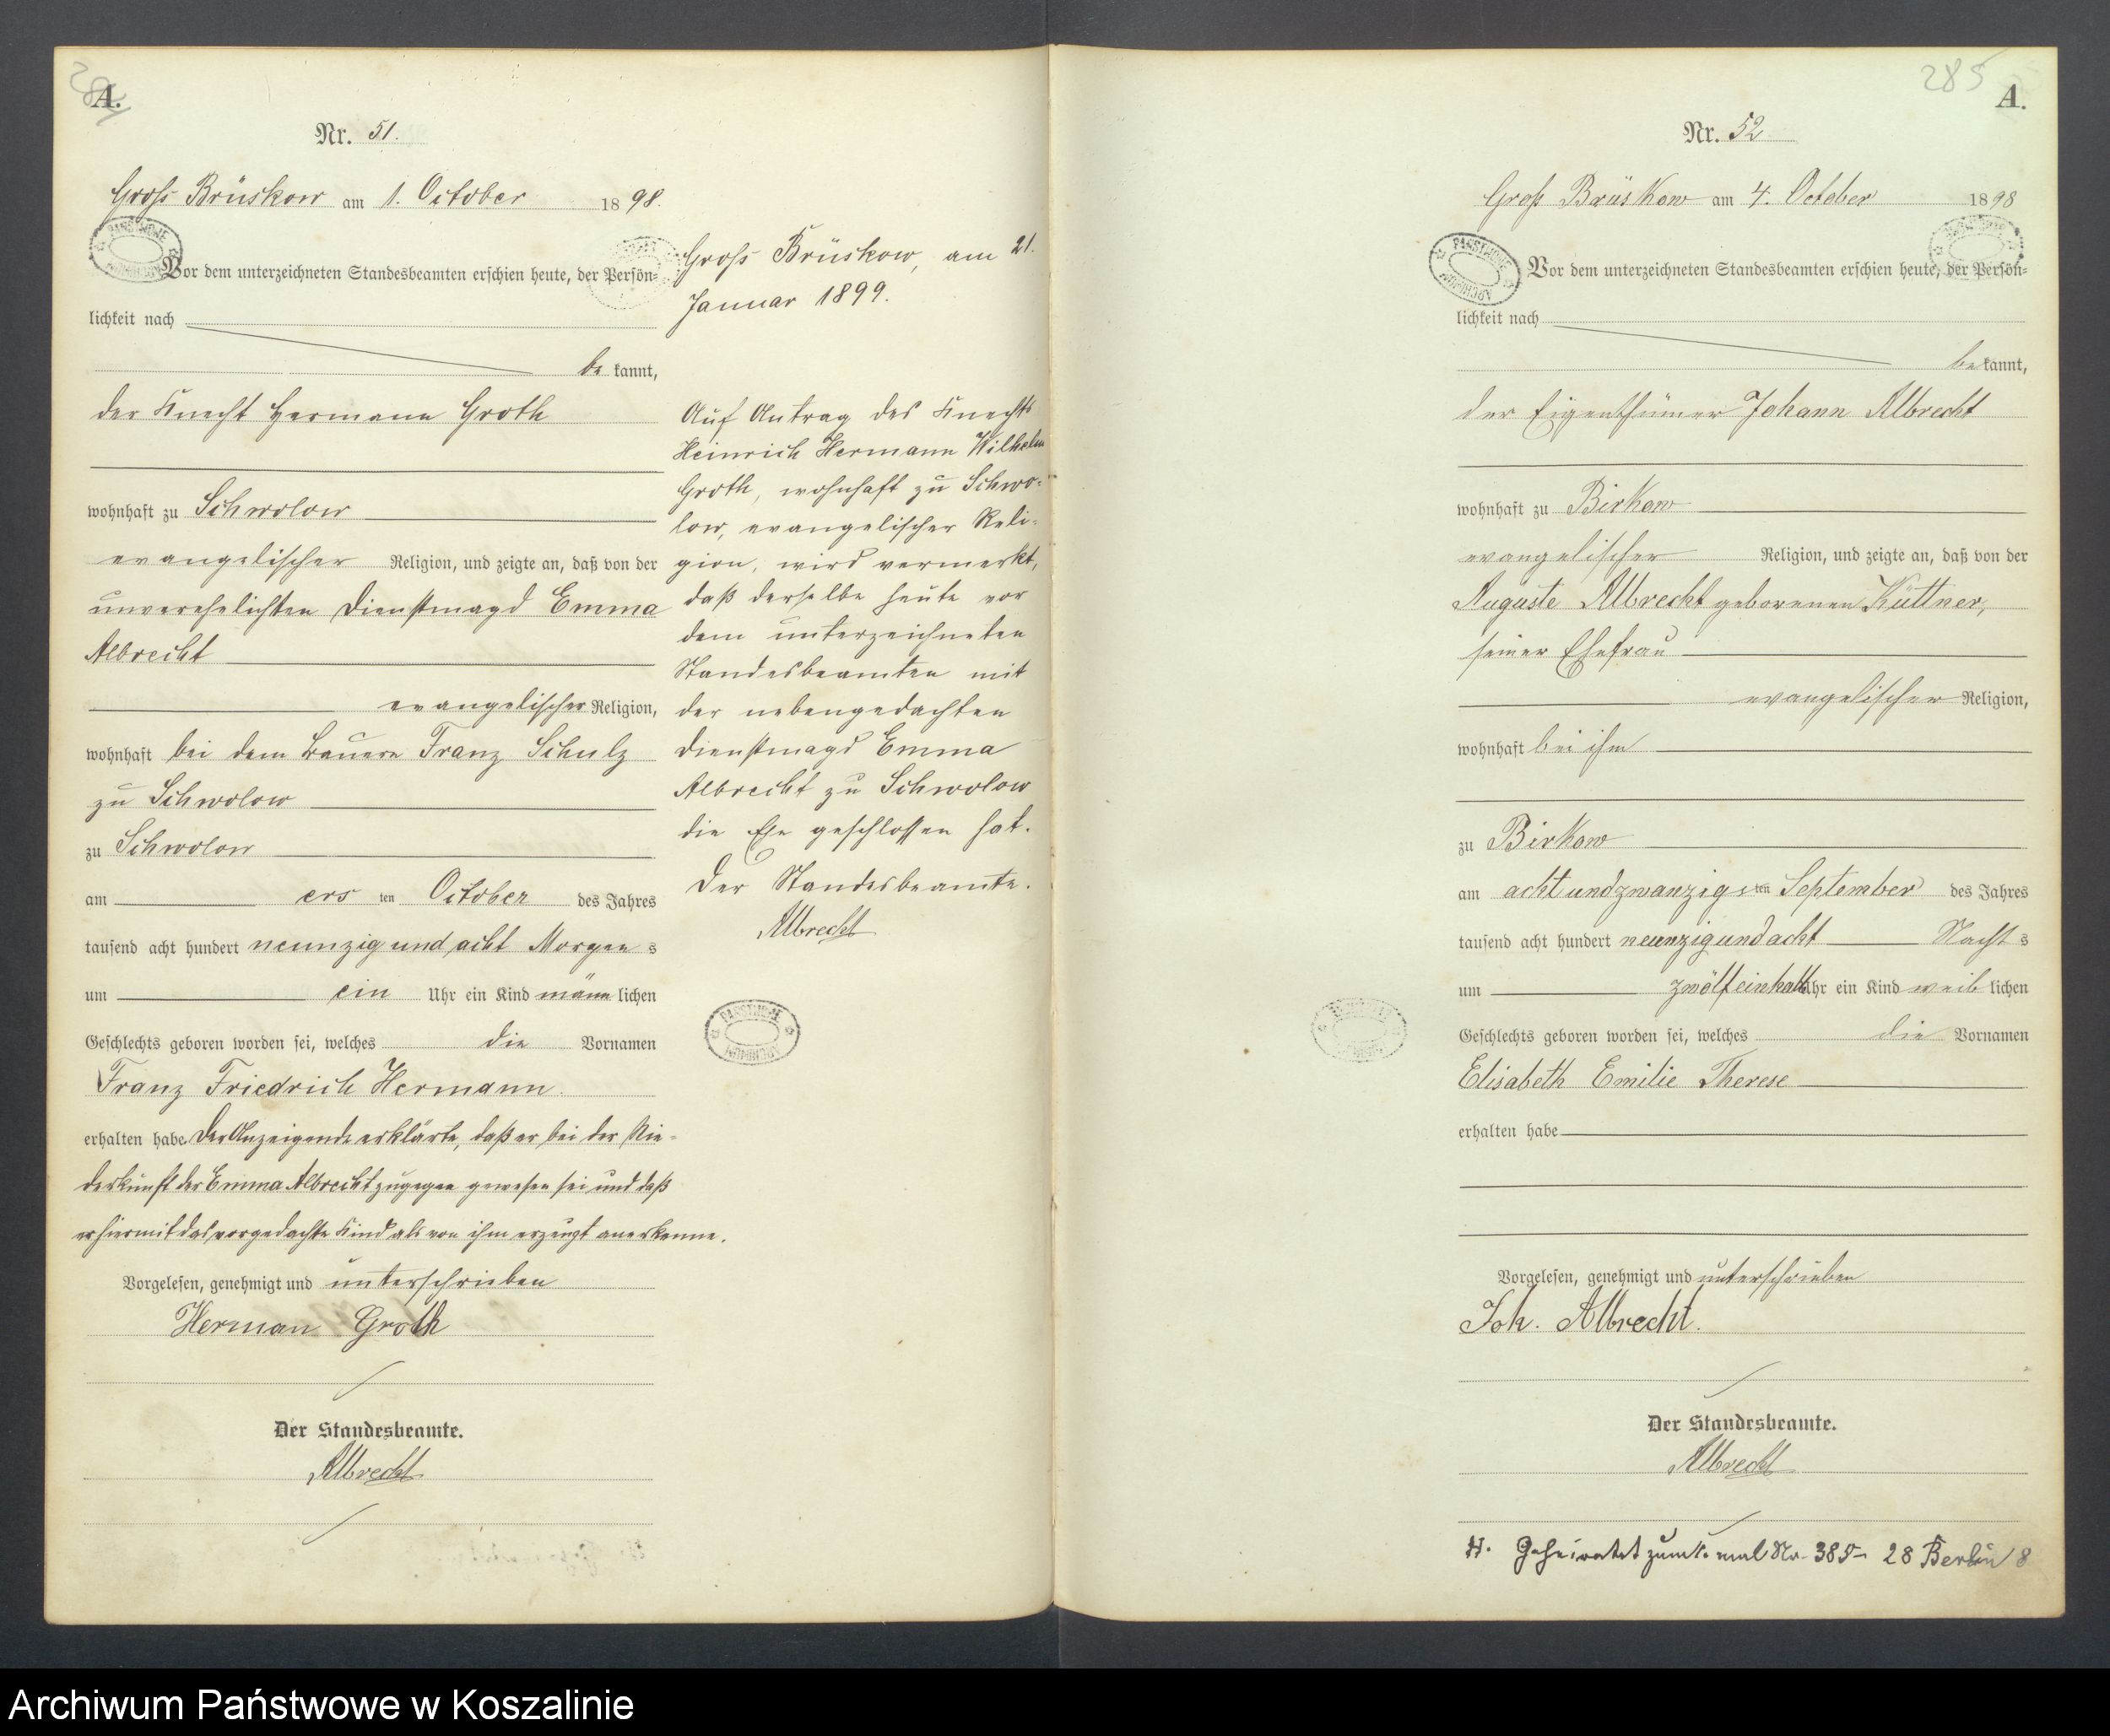 284
A.
Nr. 51.
Gross Brüskow am 1. October 1898.
Vor dem unterzeichneten Standesbeamten erschien heute, der Persön=
lichkeit nach
be kannt,
der Knecht Hermann Groth
wohnhaft zu Schwolow
evangelischer Religion, und zeigte an, daß von der
unverehelichten Dienstmagd Emma
Albrecht
evangelischer Religion,
wohnhaft bei dem Bauern Franz Schulz
zu Schwolow
zu Schwolow
am ersten October des Jahres
tausend acht hundert neunzig und acht Morgens
um ein Uhr ein Kind männlichen
Geschlechts geboren worden sei, welches die Vornamen
Franz Friedrich Hermann.
erhalten habe. Der Anzeigende erklärte, daß er bei der Nie=
derkunft der Emma Albrecht zugegen gewesen sei und daß
er hiermit das vorgedachte Kind als von ihm erzeugt anerkenne.
Vorgelesen, genehmigt und unterschrieben
Herman Groth
Der Standesbeamte.
Albrecht
Gross Brüskow, am 21.
Januar 1899.
Auf Antrag des Knechts
Heinrich Hermann Wilhelm
Groth, wohnhaft zu Schwo=
low, evangelischer Reli=
gion, wird vermerkt,
daß derselbe heute vor
dem unterzeichneten
Standesbeamten mit
der nebengedachten
Dienstmagd Emma
Albrecht zu Schwolow
die Ehe geschlossen hat.
Der Standesbeamte.
Albrecht
PAŃSTWOWE ARCHIWUM
285
A.
Nr. 52
Groß Brüskow am 4. October 1898
Vor dem unterzeichneten Standesbeamten erschien heute, der Persön=
lichkeit nach
bekannt,
der Eigenthümer Johann Albrecht
wohnhaft zu Birkow
evangelischer Religion, und zeigte an, daß von der
Auguste Albrecht geborenen Küttner,
seiner Ehefrau
evangelischer Religion,
wohnhaft bei ihm
zu Birkow
am achtundzwanzigsten September des Jahres
tausend acht hundert neunzig und acht Nachts
um zwölfeinhalb Uhr ein Kind weiblichen
Geschlechts geboren worden sei, welches die Vornamen
Elisabeth Emilie Therese
erhalten habe
Vorgelesen, genehmigt und unterschrieben
Joh. Albrecht.
Der Standesbeamte.
Albrecht
Geheiratet zum 1. mal Nr. 385 - 28 Berlin 8
Archiwum Państwowe w Koszalinie